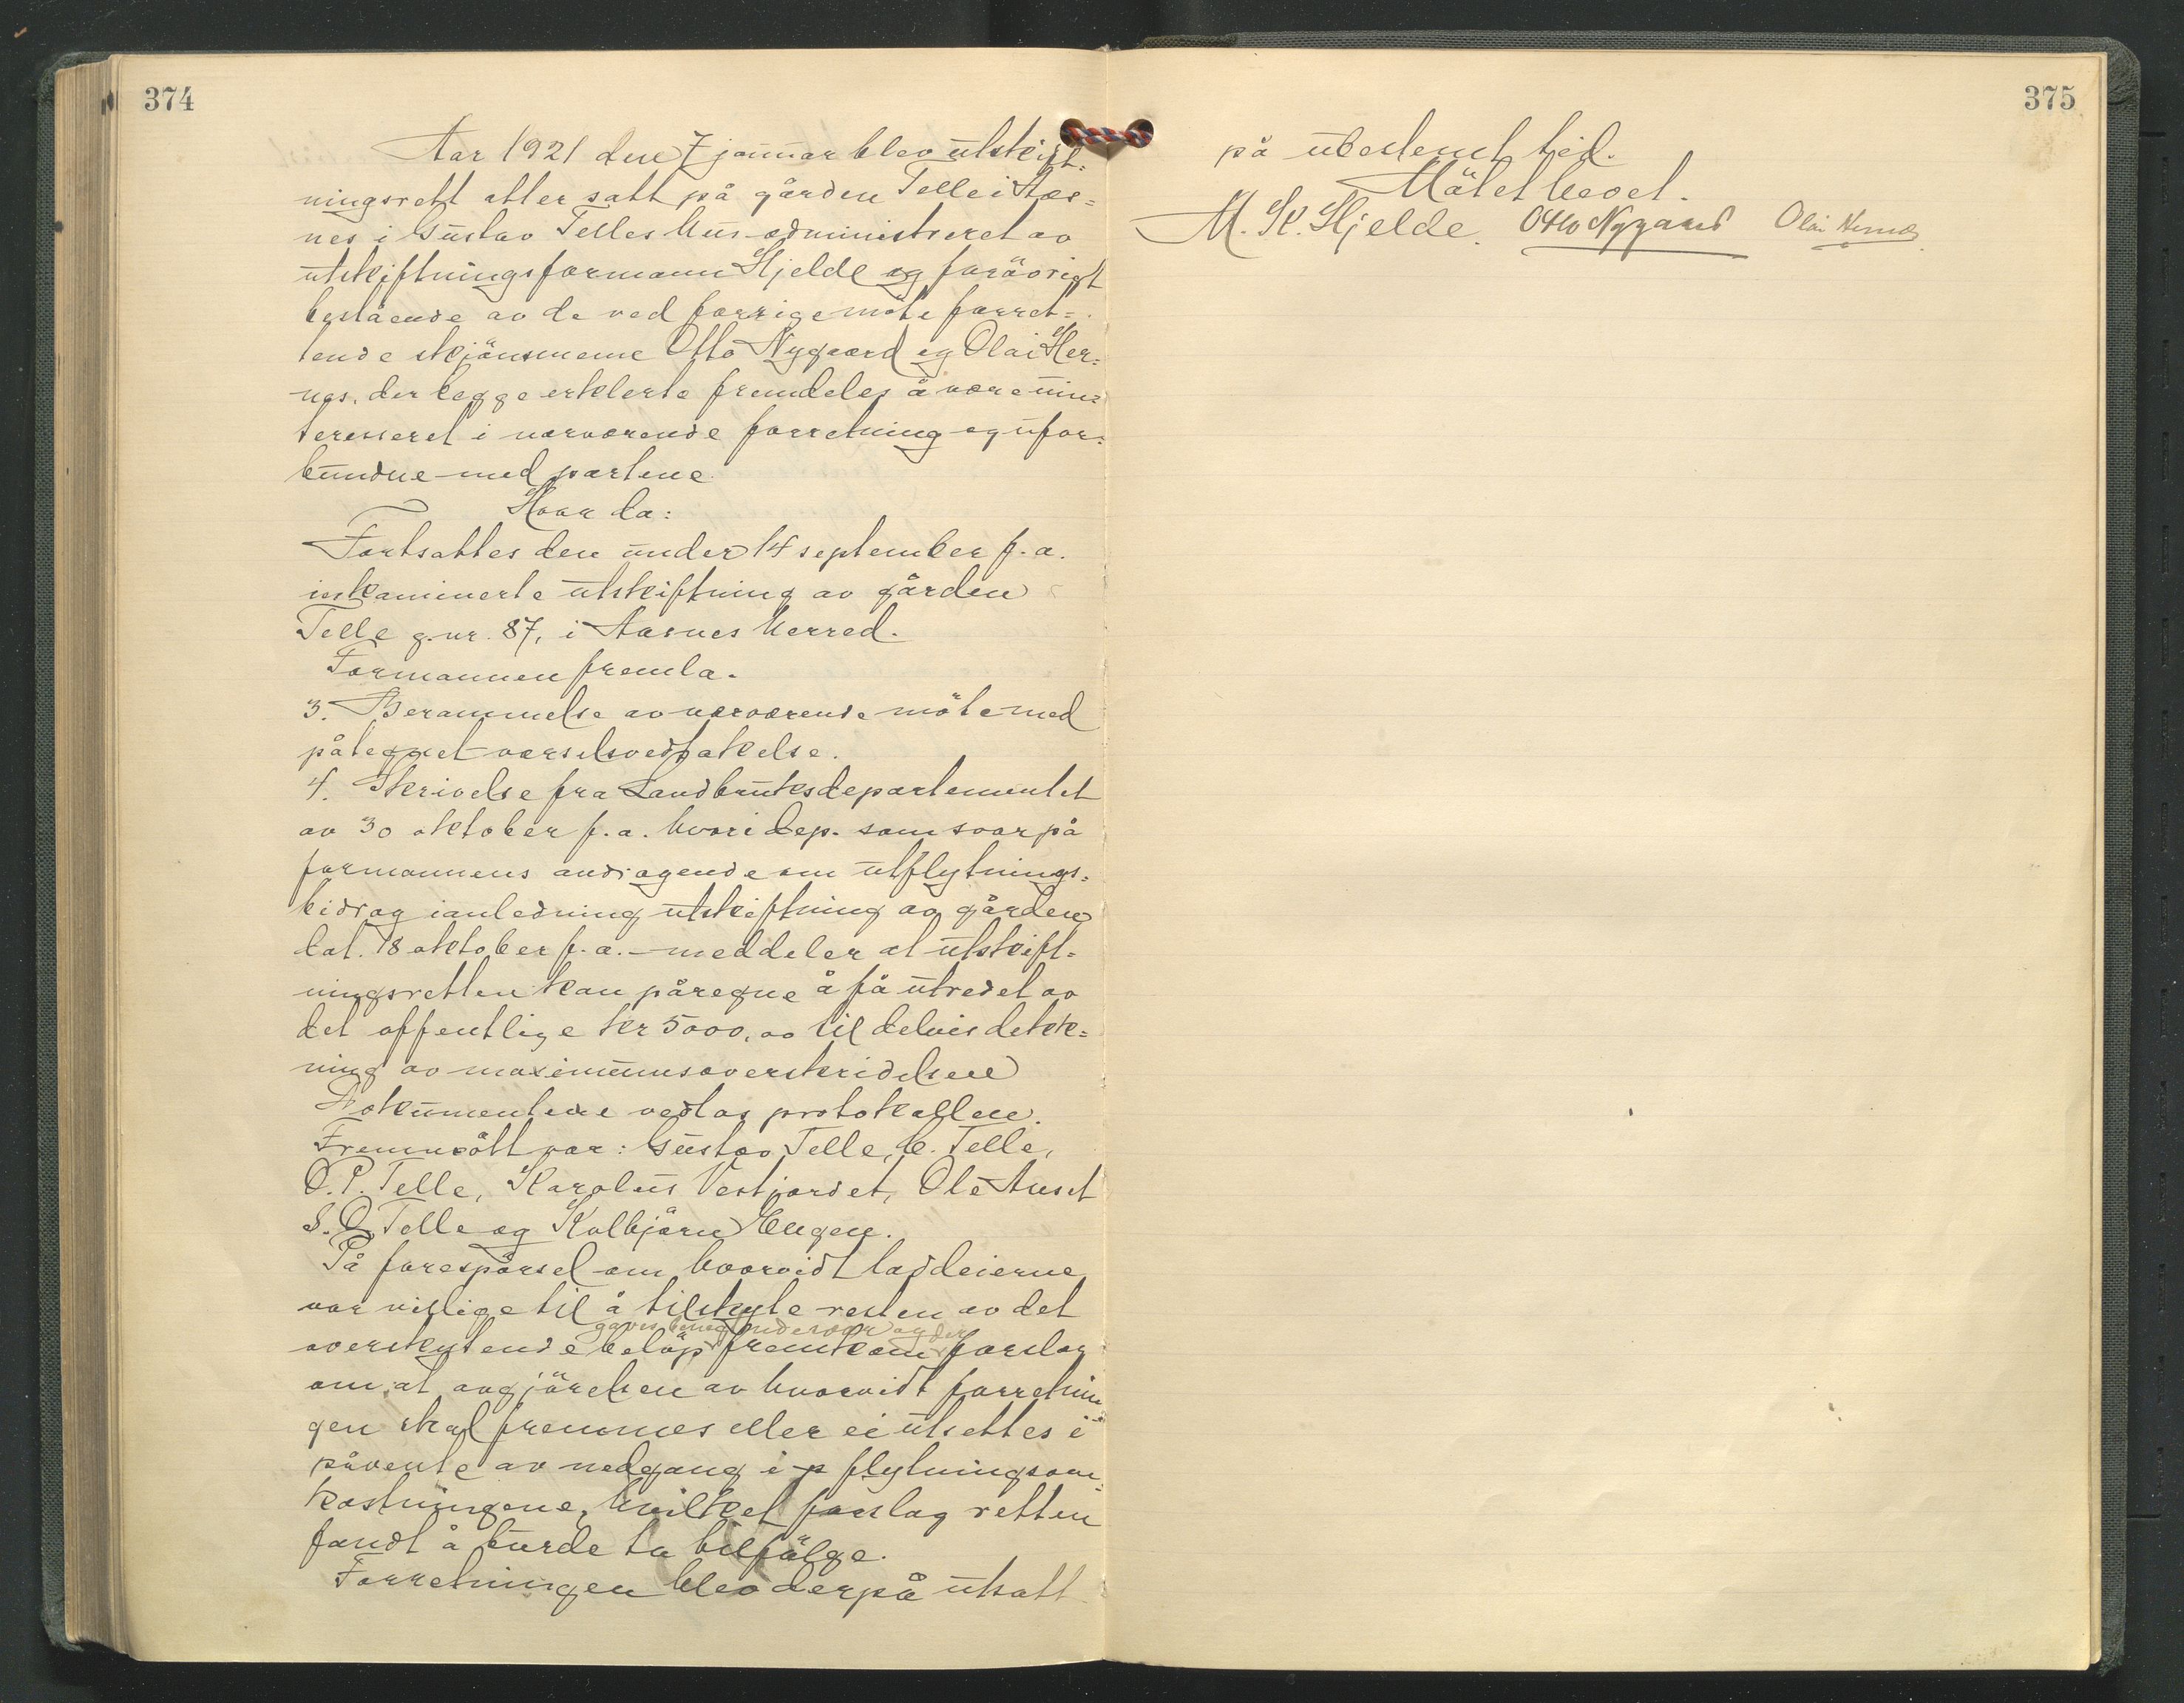 374
Aar 1921 den 7 januar blev utskift-
ningsrett atter satt på gården Telle i Aas=
nes i Gustav Telles hus administreret av
utskiftningsformann Hjelde og forövrigt
bestående av de ved forrige möte forret=
tende skjönsmenne Otto Nygaard og Olai Her=
nes, der begge erklerte fremdeles å være uin=
teresseret i nærværende forretning og ufor=
bundne med partene.
Hvor da:
Fortsattes den under 14 september f.a.
inkaminerte utskiftning av gården
Telle g.nr. 87, i Aasnes herred.
Formannen fremla.
3. Berammelse av nærværende möte med
påtegnet varselsvedtakelse.
4. Skrivelse fra Landbruksdepartementet
av 30 oktober f.a. hvori dep. som svar på
formannens andragende om utflytnings-
bidrag i anledning utskiftning av gården
dat. 18 oktober f.a. - meddeler at utskift-
ningsretten kan påregne å få utredet av
det offentlige kr 5000,00 til delvis dekk=
ning av maximumsoverskridelsen
Dokumentene vedlas protokollen.
Fremmött var: Gustav Telle, E. Telle,
O.P. Telle, Karolus Vestjordet, Ole Auset
S.O. Telle og Kolbjörn Engen.
På forespörsel om hvorvidt loddeierne
var villige til å tilskyte resten av det
gaves benegtende svar og der
overskytende belöp fremkom forslag
om at avgjörelsen av hvorvidt forretnin
gen skal fremmes eller ei utsettes i
påvente av nedgang i p flytningsom-
kostningene, hvilket forslag retten
fandt å burde ta tilfölge.
Forretningen blev derpå utsatt
375
på ubestemt tid.
Mötet hevet.
M. K. Hjelde. Otto Nygaard Olai Hernes